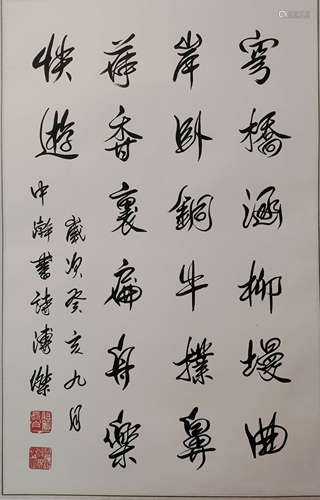 穹橋涵柳墁曲
岸臥銅牛撲鼻
荷香裏扁舟樂
快遊
歲次癸亥九月
中書詩溥傑